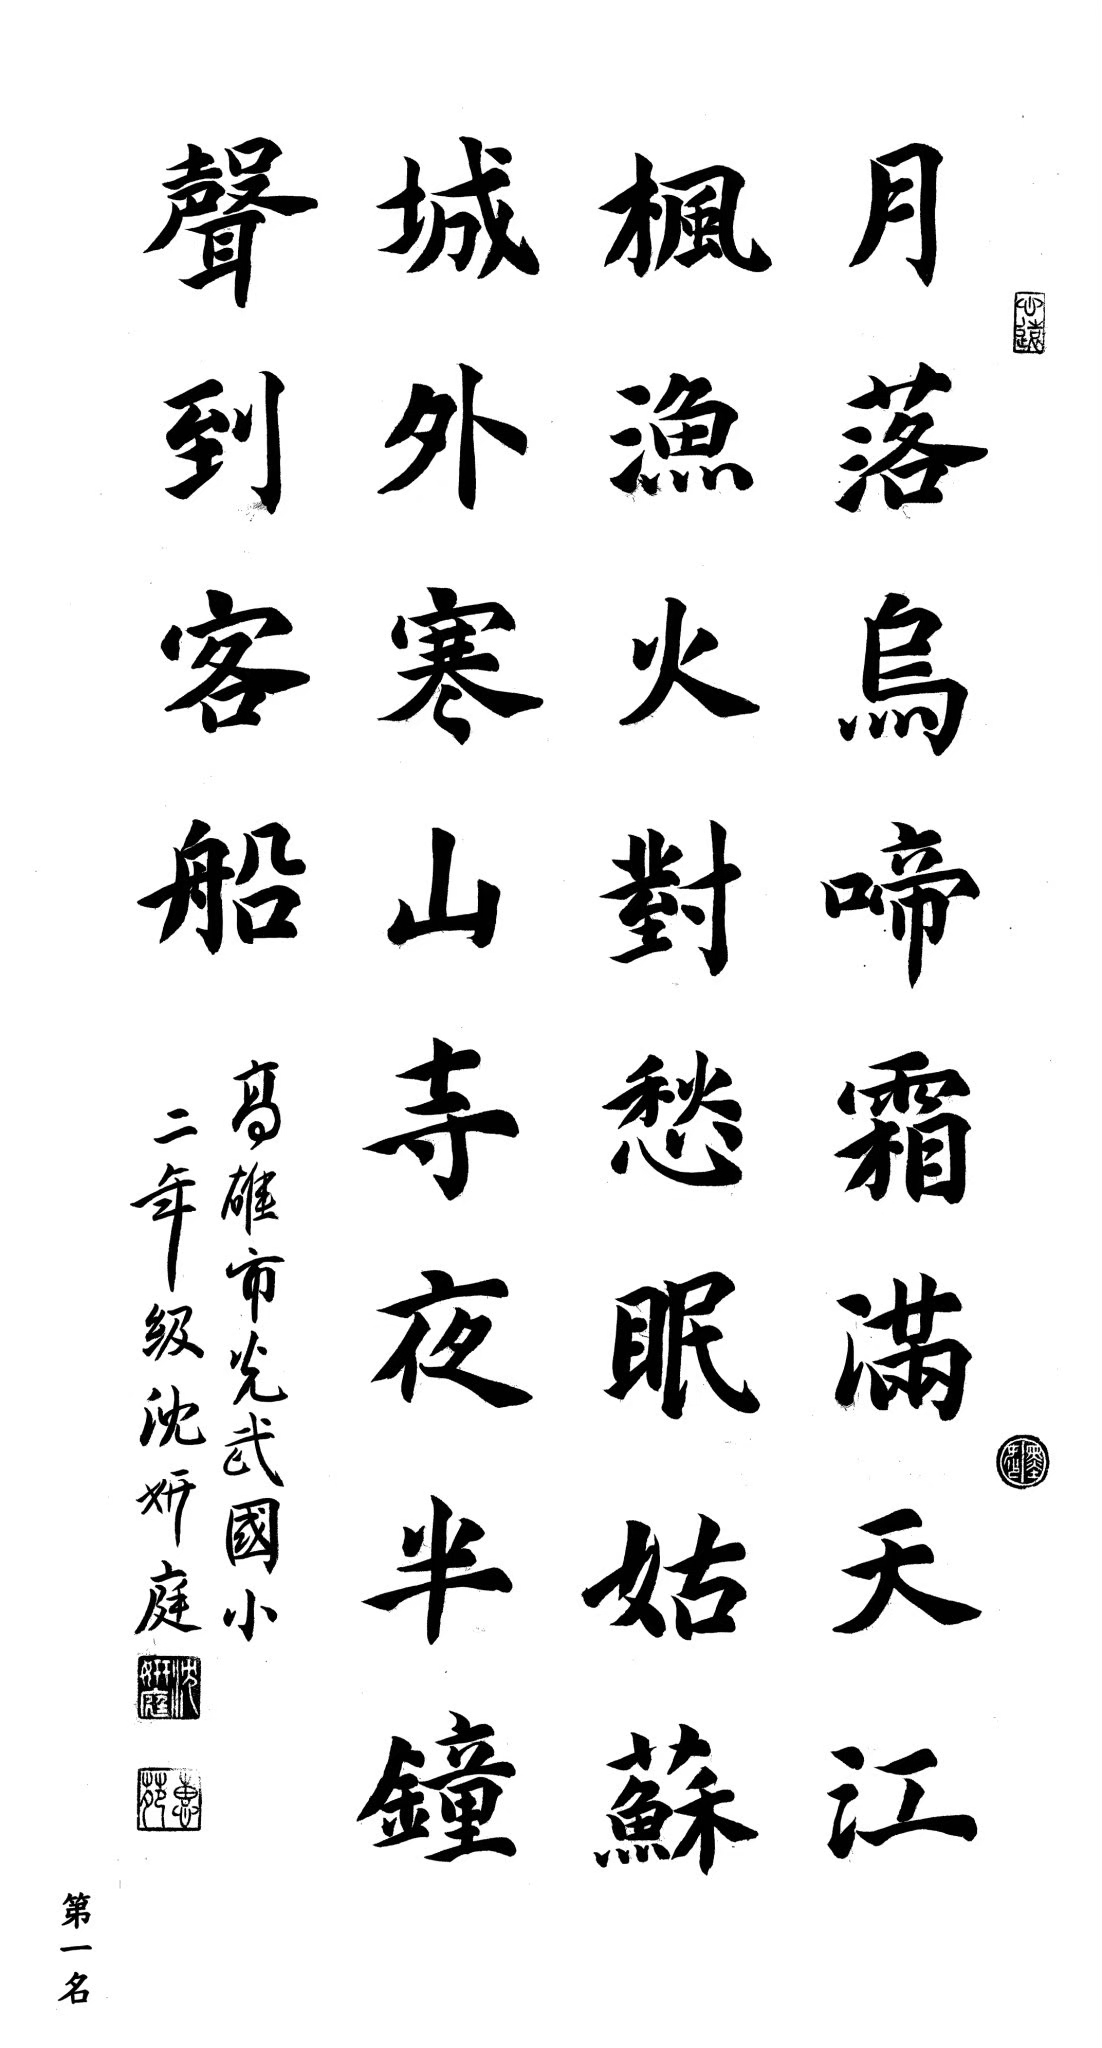 月落烏啼霜滿天江
楓漁火對愁眠姑蘇
城外寒山寺夜半鐘
聲到客船
高雄市光武國小
二年級沈妍庭
沈妍庭
惠苑
心遠
第一名